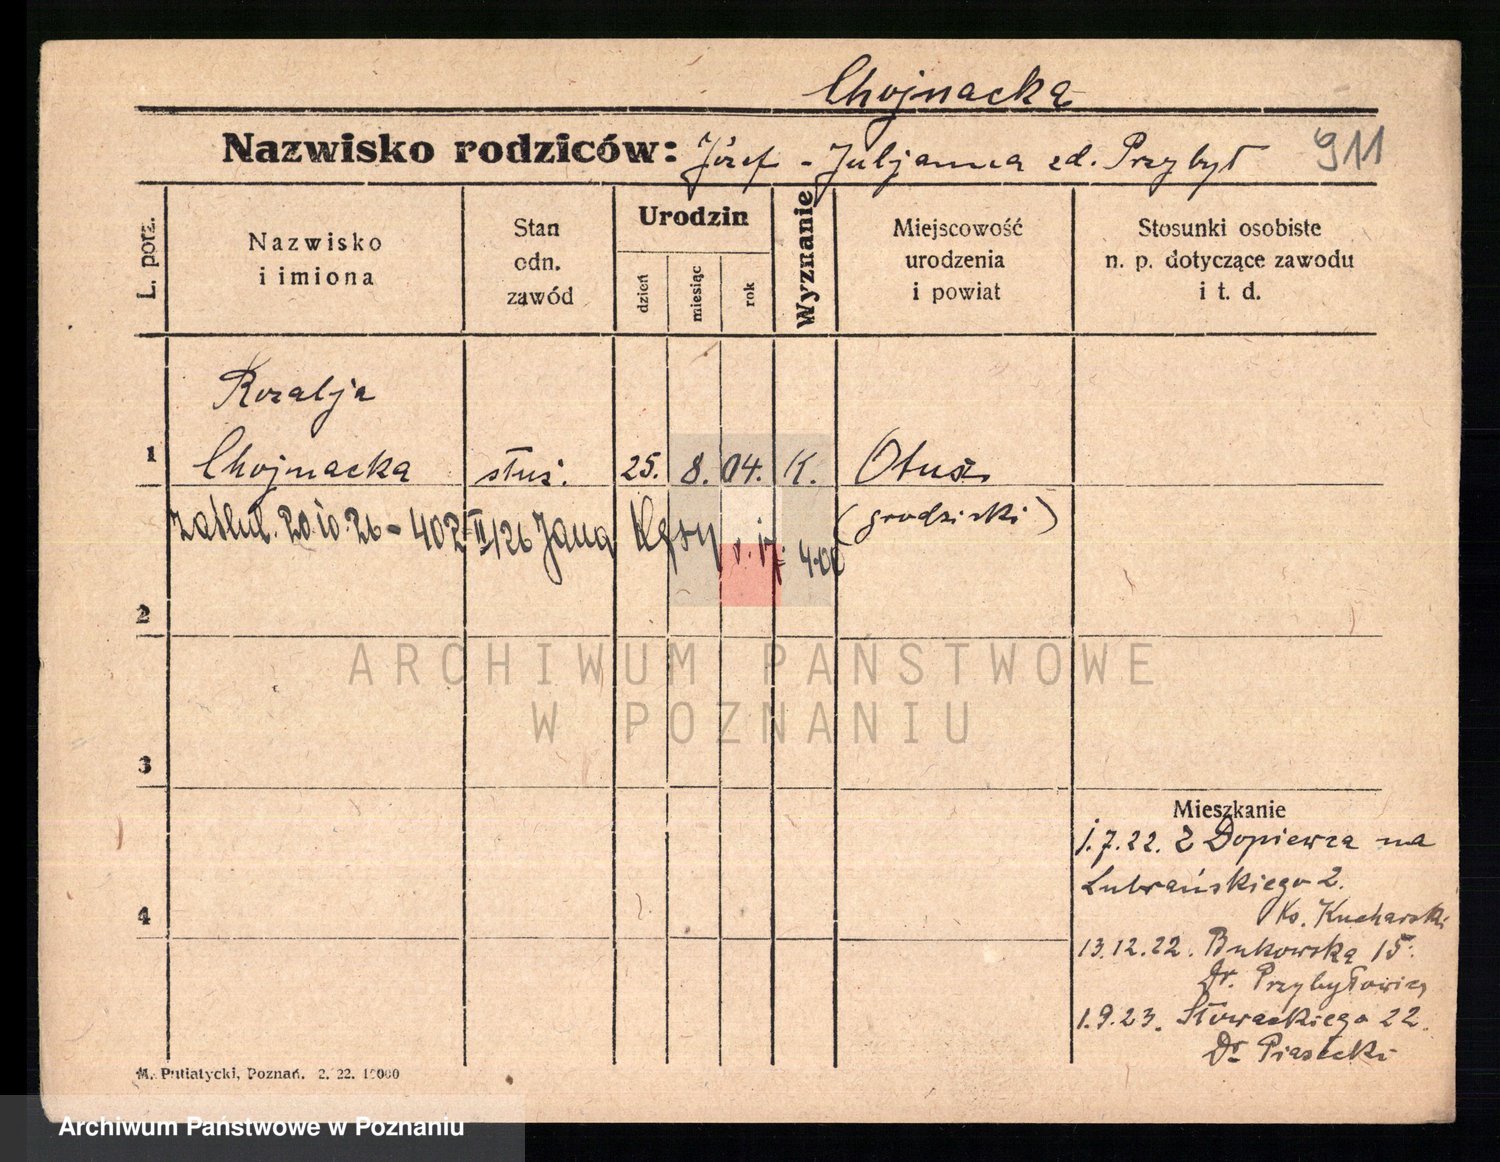 Chojnacka
Nazwisko rodziców: Józef - Juljanna zd. Przybył 911
L. porz.
Nazwisko
i imiona
Stan
odn.
zawód
Urodzin
dzień
miesiąc
rok
Wyznanie
Miejscowość
urodzenia
i powiat
Stosunki osobiste
n. p. dotyczące zawodu
i t. d.
Rozalja
1 Chojnacka służ. 25. 8. 04. K. Otusz
(grodziski)
zaślub. 20.10.26 - 402 II/26 Jana
2
ARCHIWUM PAŃSTWOWE
W POZNANIU
3
Mieszkanie
1.7.22. Z Dopiewca na
Lubrańskiego 2.
Ks. Kucharski
4
13.12.22. Bukowska 15.
Dr. Przybyłowicz
1.9.23. Słowackiego 22.
Dr Piasecki
M. Putiatycki, Poznań. 2. 22. 10000
Archiwum Państwowe w Poznaniu